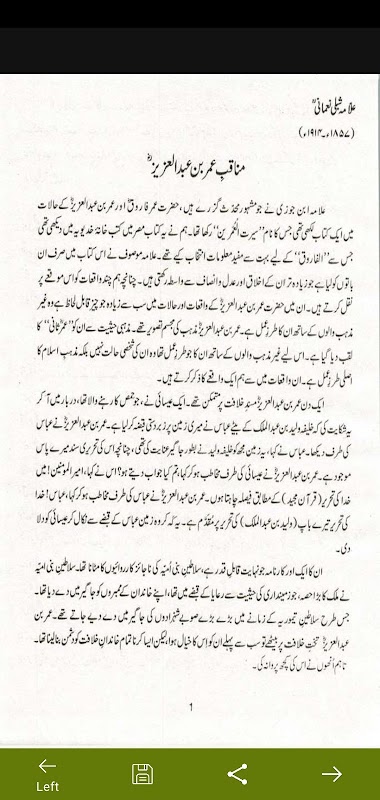 علامہ شبلی نعمانیؒ
(۱۸۵۷ء۔۱۹۱۴ء)
مناقبِ عمر بن عبدالعزیزؒ
علامہ ابن جوزی نے جو مشہور محدّث گزرے ہیں، حضرت عمر فاروقؓ اور عمر بن عبدالعزیزؒ کے حالات
میں ایک کتاب لکھی تھی جس کا نام ’’سیرت العُمَرین‘‘ رکھا تھا۔ ہم نے یہ کتاب مصر میں کتب خانۂ خدیویہ میں دیکھی تھی
جس سے ’’الفاروق‘‘ کے لیے بہت سے مفید معلومات انتخاب کیے تھے۔ علامہ موصوف نے اس کتاب میں صرف ان
باتوں کو لیا ہے جو زیادہ تر ان کے اخلاق اور عدل و انصاف سے واسطہ رکھتی ہیں۔ چنانچہ ہم چند واقعات کو اس موقعے پر
نقل کرتے ہیں۔ ان میں حضرت عمر بن عبدالعزیزؒ کے واقعات اور حالات میں سب سے زیادہ جو چیز قابلِ لحاظ ہے وہ غیر
مذہب والوں کے ساتھ ان کا طرزِ عمل ہے۔ عمر بن عبدالعزیزؒ مذہب کی مجسم تصویر تھے۔ مذہبی حیثیت سے ان کو ’’عمرِ ثانی‘‘ کا
لقب دیا گیا ہے۔ اس لیے غیر مذہب والوں کے ساتھ ان کا جو طرزِ عمل تھا وہ ان کی شخصی حالت نہیں بلکہ مذہب اسلام کا
اصلی طرزِ عمل ہے۔ ان واقعات میں سے ہم ایک واقعے کا ذکر کرتے ہیں۔
ایک دن عمر بن عبدالعزیزؒ مسندِ خلافت پر متمکن تھے۔ ایک عیسائی نے، جو حمص کا رہنے والا تھا، دربار میں آ کر
یہ شکایت کی کہ خلیفہ ولید بن عبدالملک کے بیٹے عباس نے میری زمین پر زبردستی قبضہ کر لیا ہے۔ عمر بن عبدالعزیزؒ نے عباس
کی طرف دیکھا۔ عباس نے کہا، یہ زمین مجھ کو خلیفہ ولید نے بطور جاگیر عنایت کی تھی، چنانچہ اس کی تحریری سند میرے پاس
موجود ہے۔ عمر بن عبدالعزیزؒ نے عیسائی کی طرف مخاطب ہو کر کہا، تم کیا جواب دیتے ہو؟ اس نے کہا، امیرالمومنین! میں
خدا کی تحریر (قرآن مجید) کے مطابق فیصلہ چاہتا ہوں۔ عمر بن عبدالعزیزؒ نے عباس کی طرف مخاطب ہو کر کہا، عباس! خدا
کی تحریر تیرے باپ (ولید بن عبدالملک) کی تحریر پر مُقدّم ہے۔ یہ کہہ کر وہ زمین عباس کے قبضے سے نکال کر عیسائی کو دلا
دی۔
ان کا ایک اور کارنامہ جو نہایت قابلِ قدر ہے، سلاطینِ بنی اُمیّہ کی ناجائز کارروائیوں کا مٹانا تھا۔ سلاطینِ بنی امیّہ
نے ملک کا بڑا حصہ، جو زمینداری کی حیثیت سے رعایا کے قبضے میں تھا، اپنے خاندان کے ممبروں کو جاگیر میں دے دیا تھا۔
جس طرح سلاطینِ تیموریہ کے زمانے میں بڑے بڑے صوبے شہزادوں کی جاگیر میں دے دیے جاتے تھے۔ عمر بن
عبدالعزیزؒ تختِ خلافت پر بیٹھے تو سب سے پہلے ان کو اس کا خیال ہوا، لیکن ایسا کرنا تمام خاندانِ خلافت کو دشمن بنا لینا تھا۔
تاہم اُنھوں نے اس کی کچھ پروا نہ کی۔
1
Left